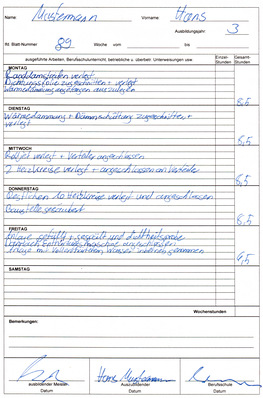 Name: Mustermann Vorname: Hans
Ausbildungsjahr: 3
lfd. Blatt-Nummer 89 Woche vom bis
ausgeführte Arbeiten, Berufsschulunterricht, betriebliche u. überbetr. Unterweisungen usw. Einzel-Stunden Gesamt-Stunden
MONTAG
Randdämmstreifen verlegt
verlegt
Wärmedämmung angefangen auszulegen
8,5
DIENSTAG
Wärmedämmung + zugeschnitten +
verlegt
8,5
MITTWOCH
verlegt + Verteiler angeschlossen
2 Heizkreise verlegt + angeschlossen an Verteiler
8,5
DONNERSTAG
Restlichen 10 Heizkreise verlegt und angeschlossen
Baustelle gesäubert
8,5
FREITAG
Anlage gefüllt + gespült und Dichtheitsprobe
angeschlossen
Anlage mit Wasser
9,5
SAMSTAG
Wochenstunden
Bemerkungen:
Hans Mustermann
ausbildender Meister Auszubildender Berufsschule
Datum Datum Datum